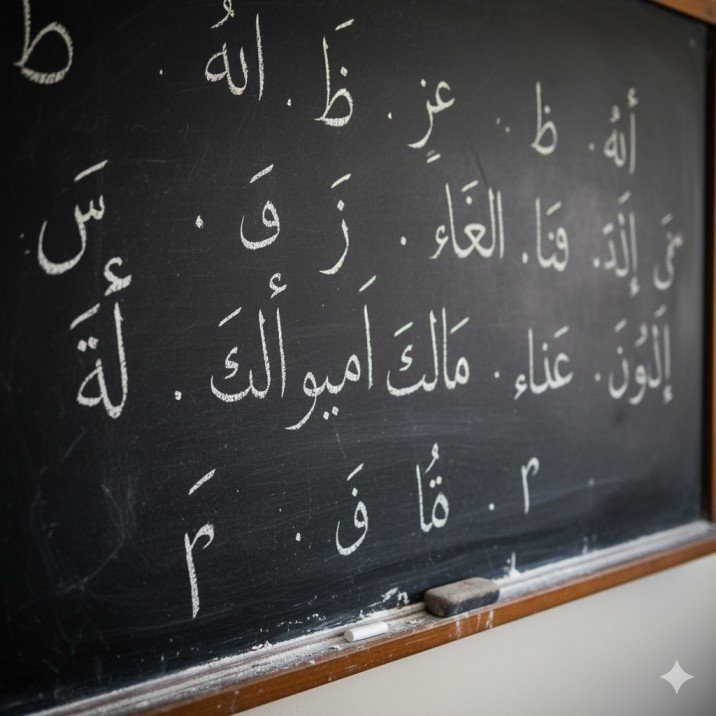 أنهُ . ظ . عزٍ . ظَ . انهُ . ط
إلَدَ . فنَا . الغَاءٍ . زَ وَ . سَ
إلَوُنَ . عَناء . مَالكَ أميوألكَ . لَةَ
م . قاُ فَ . مَ